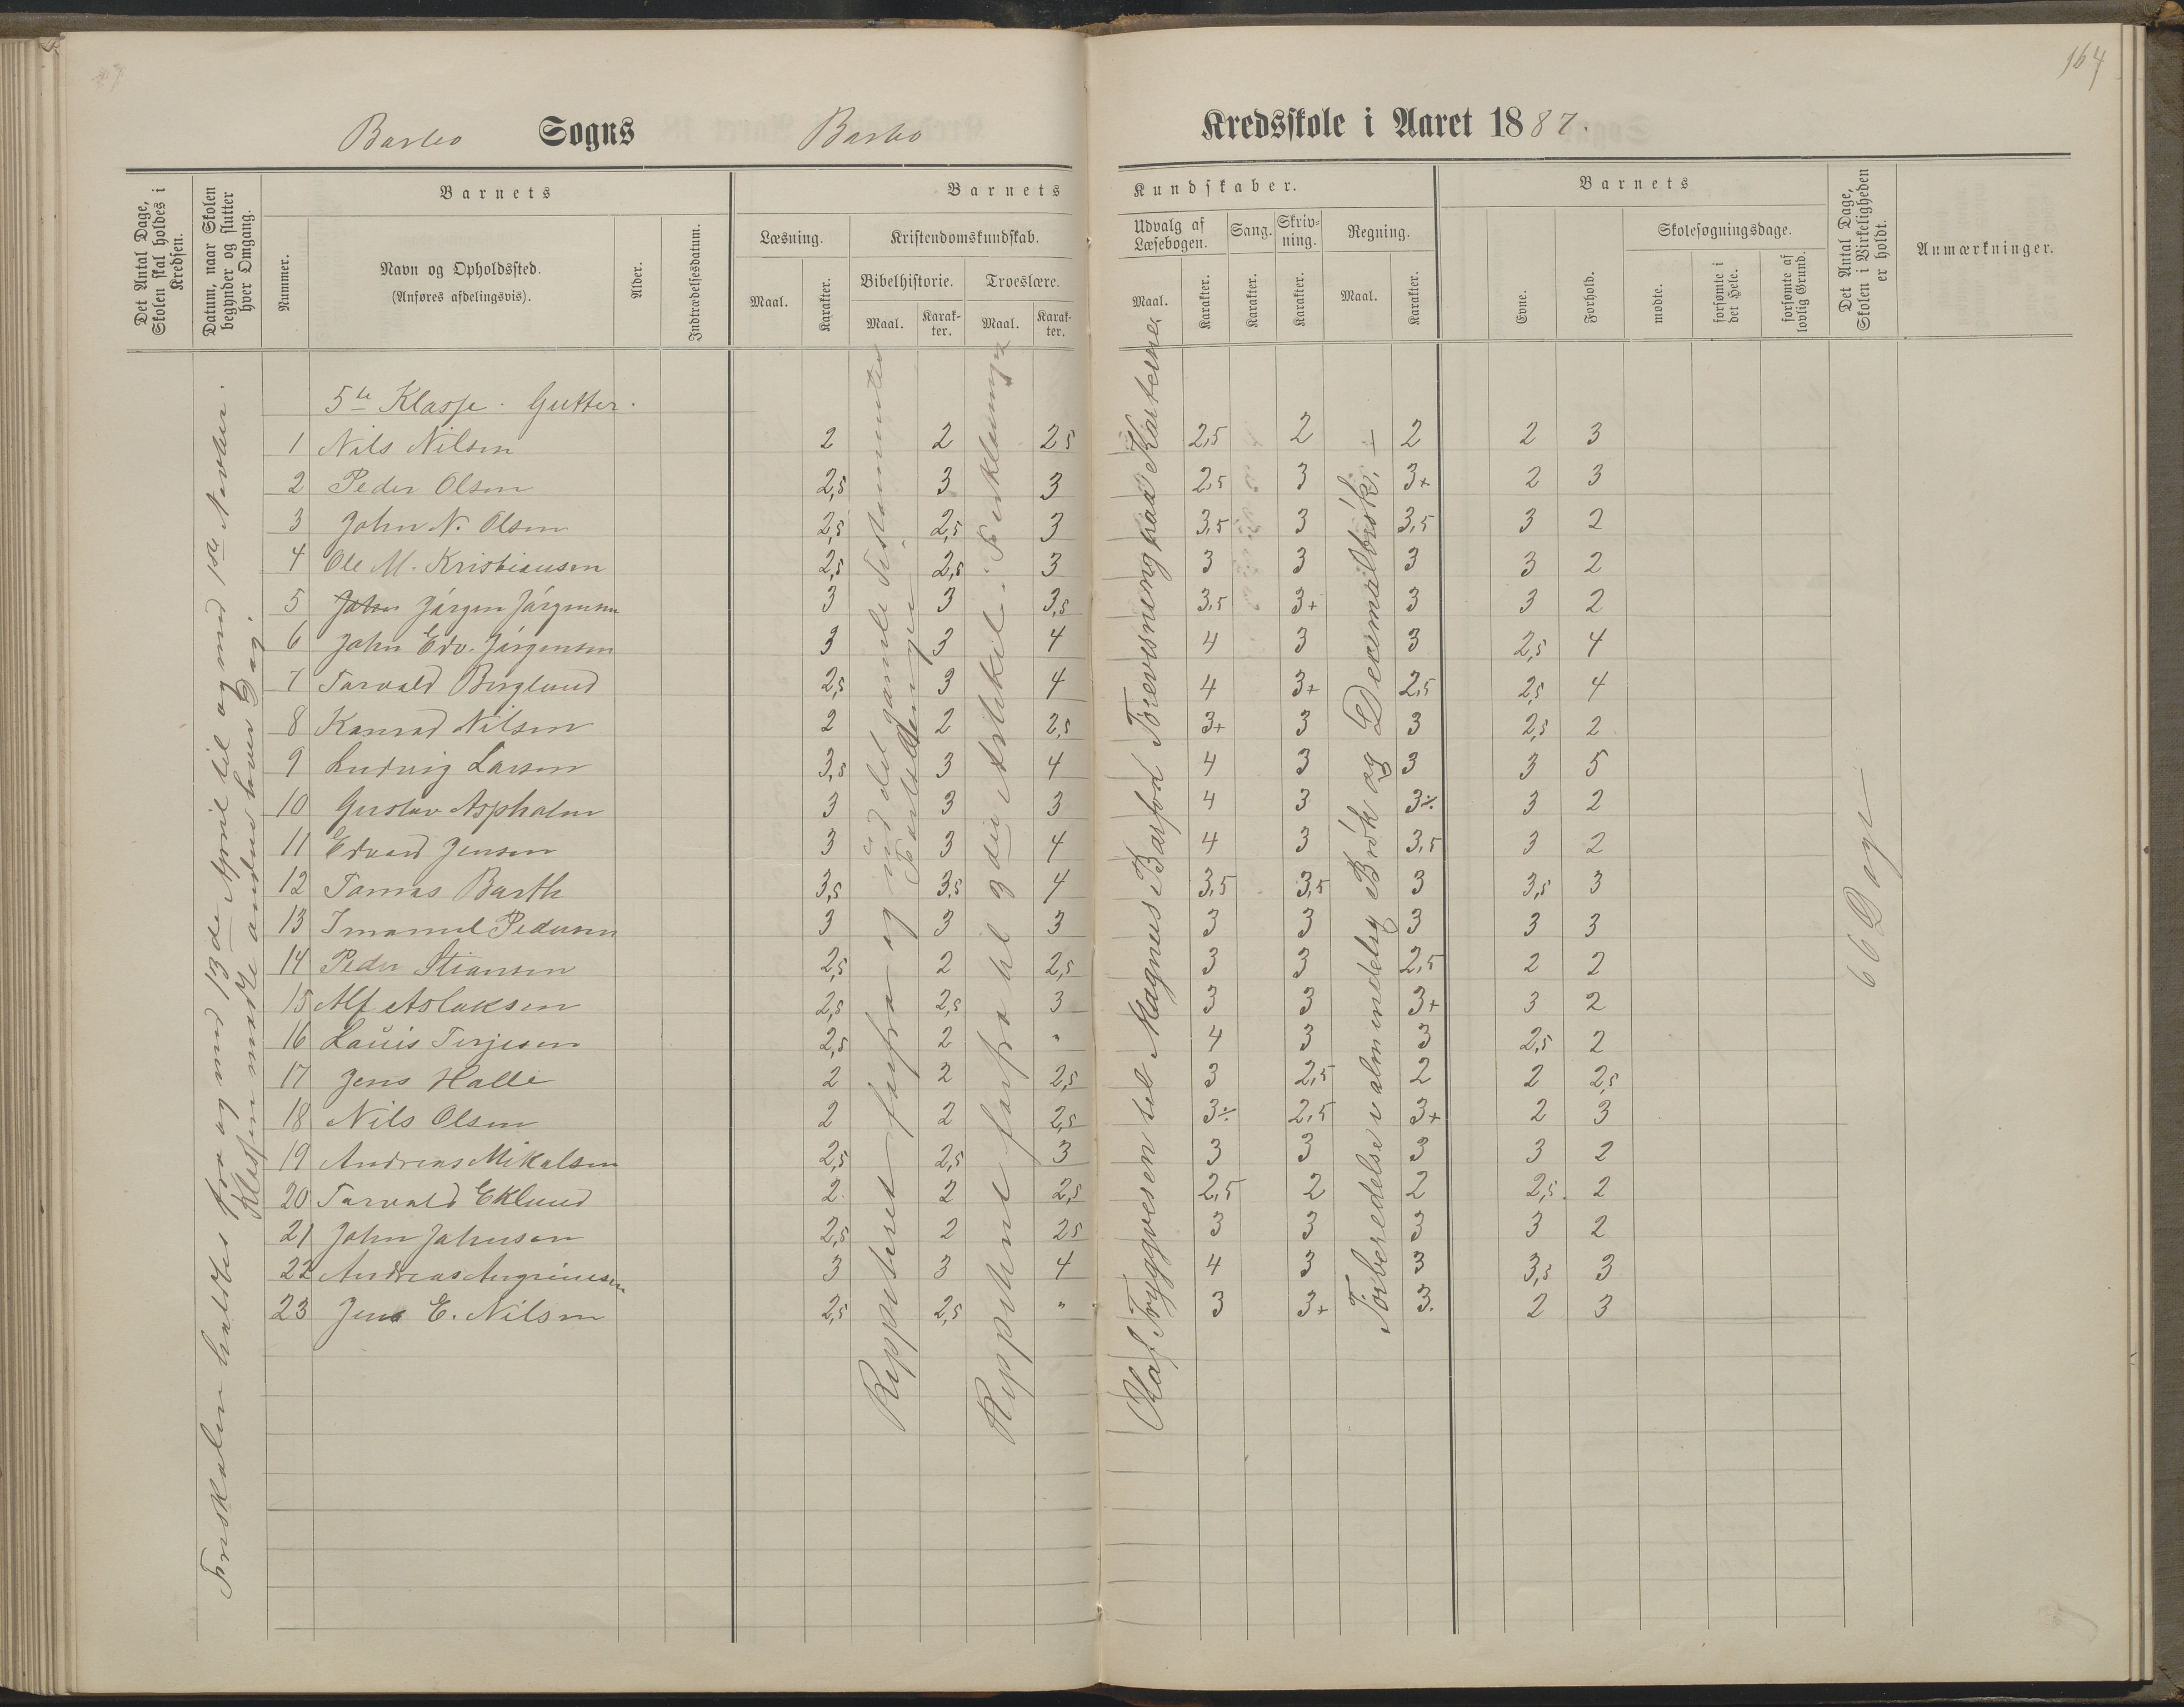 164
Barbo Sogns Barbo Kredsskole i Aaret 1887.
Det Antal Dage, Skolen skal holdes i Kredsen.
Datum, naar Skolen begynder og slutter hver Omgang.
Nummer.
Barnets
Navn og Opholdssted.
(Anføres afdelingsvis).
Alder.
Indtrædelsesdatum.
Barnets Kundskaber.
Læsning.
Maal.
Karakter.
Kristendomskundskab.
Bibelhistorie.
Maal.
Karakter.
Troeslære.
Maal.
Karakter.
Udvalg af Læsebogen.
Maal.
Karakter.
Sang.
Karakter.
Skrivning.
Karakter.
Regning.
Maal.
Karakter.
Barnets
Evne.
Forhold.
Skolesøgningsdage.
mødte.
forsømte i det Hele.
forsømte af lovlig Grund.
Det Antal Dage, Skolen i Virkeligheden er holdt.
Anmærkninger.
5te Klasse. Gutter.
1 Nils Nilsen 2 2 2,5 2,5 2 2 2 3
2 Peder Olsen 2,5 3 3 2,5 3 3+ 2 3
3 John N. Olsen 2,5 2,5 3 3,5 3 3,5 3 2
4 Ole M. Kristiansen 2,5 2,5 3 3 3 3 3 2
5 Jørgen Jørgensen 3 3 3,5 3,5 3+ 3 3 2
6 John Edv. Jørgensen 3 3 4 4 3 3 2,5 4
7 Torvald Berglund 2,5 3 4 4 3+ 2,5 2,5 4
8 Konrad Nilsen 2 2 2,5 3+ 3 3 2,5 2
9 Ludvig Larsen 3,5 3 4 4 3 3 3 5
10 Gustav Aspholm 3 3 3 4 3 3÷ 3 2
11 Edvard Jensen 3 3 4 4 3 3,5 3 2
12 Tomas Barth 3,5 3,5 4 3,5 3,5 3 3,5 3
13 Imanuel Pedersen 3 3 3 3 3 3 3 3
14 Peder Stiansen 2,5 2 2,5 3 3 2,5 2 2
15 Alf Aslaksen 2,5 2,5 3 3 3 3+ 3 2
16 Louis Terjesen 2,5 2 " 4 3 3 2,5 2
17 Jens Halle 2 2 2,5 3 2,5 2 2 2,5
18 Nils Olsen 2 2 2,5 3÷ 2,5 3+ 2 3
19 Andreas Mikalsen 2,5 2,5 3 3 3 3 3 2
20 Torvald Eklund 2 2 2,5 2,5 2 2 2,5 2
21 John Johnsen 2,5 2 2,5 3 3 3 3 2
22 Andreas Angrimesen 3 3 4 4 3 3 3,5 3
23 Jens E. Nilsen 2,5 2,5 " 3 3+ 3. 2 3
holdtes fra og med 13de April til og med 1ste
Klassen mødte anden hver Dag.
Reppeteret forfra og med det gamle Testamente
Reppetert forfra til 9de Artikel: Forklaringen
Olaf Tryggvesen til Magnus Barfod Forevisning paa Karterne
Forberedelse i almindelig Brøk og Decimalbrøk. –
66 Dage